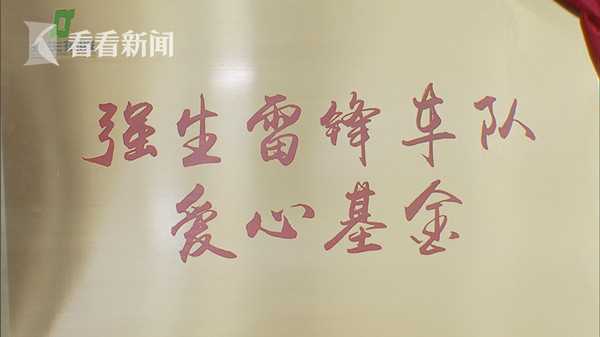 看看新闻
强生雷锋车队
爱心基金